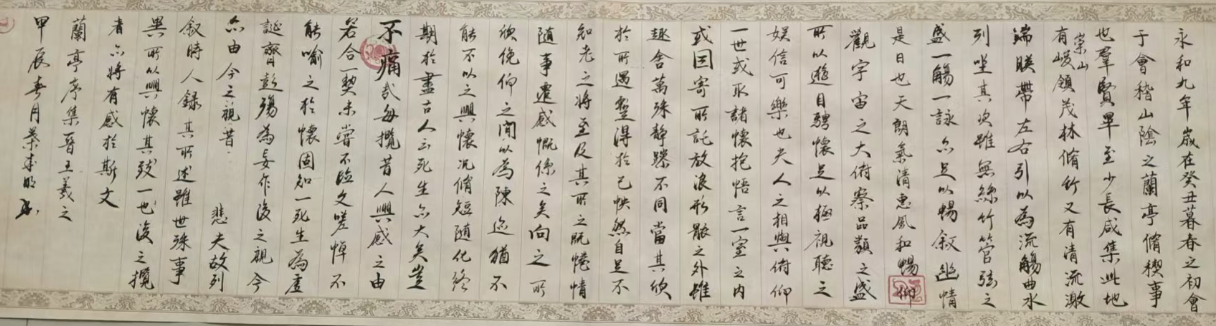 永和九年歲在癸丑暮春之初會
于會稽山陰之蘭亭脩稧事
也羣賢畢至少長咸集此地
有崇山峻領茂林脩竹又有清流激
湍暎帶左右引以為流觴曲水
列坐其次雖無絲竹管弦之
盛一觴一詠亦足以暢叙幽情
是日也天朗氣清惠風和暢仰
觀宇宙之大俯察品類之盛
所以遊目騁懷足以極視聽之
娛信可樂也夫人之相與俯仰
一世或取諸懷抱悟言一室之內
或因寄所託放浪形骸之外雖
趣舍萬殊靜躁不同當其欣
於所遇蹔得於己怏然自足不
知老之將至及其所之既惓情
隨事遷感慨係之矣向之所
欣俛仰之間以為陳迹猶不
能不以之興懷況脩短隨化終
期於盡古人云死生亦大矣豈
不痛哉每攬昔人興感之由
若合一契未嘗不臨文嗟悼不
能喻之於懷固知一死生為虛
誕齊彭殤為妄作後之視今
亦由今之視昔 悲夫故列
叙時人錄其所述雖世殊事
異所以興懷其致一也後之攬
者亦將有感於斯文
蘭亭序集晉王羲之
甲辰春月